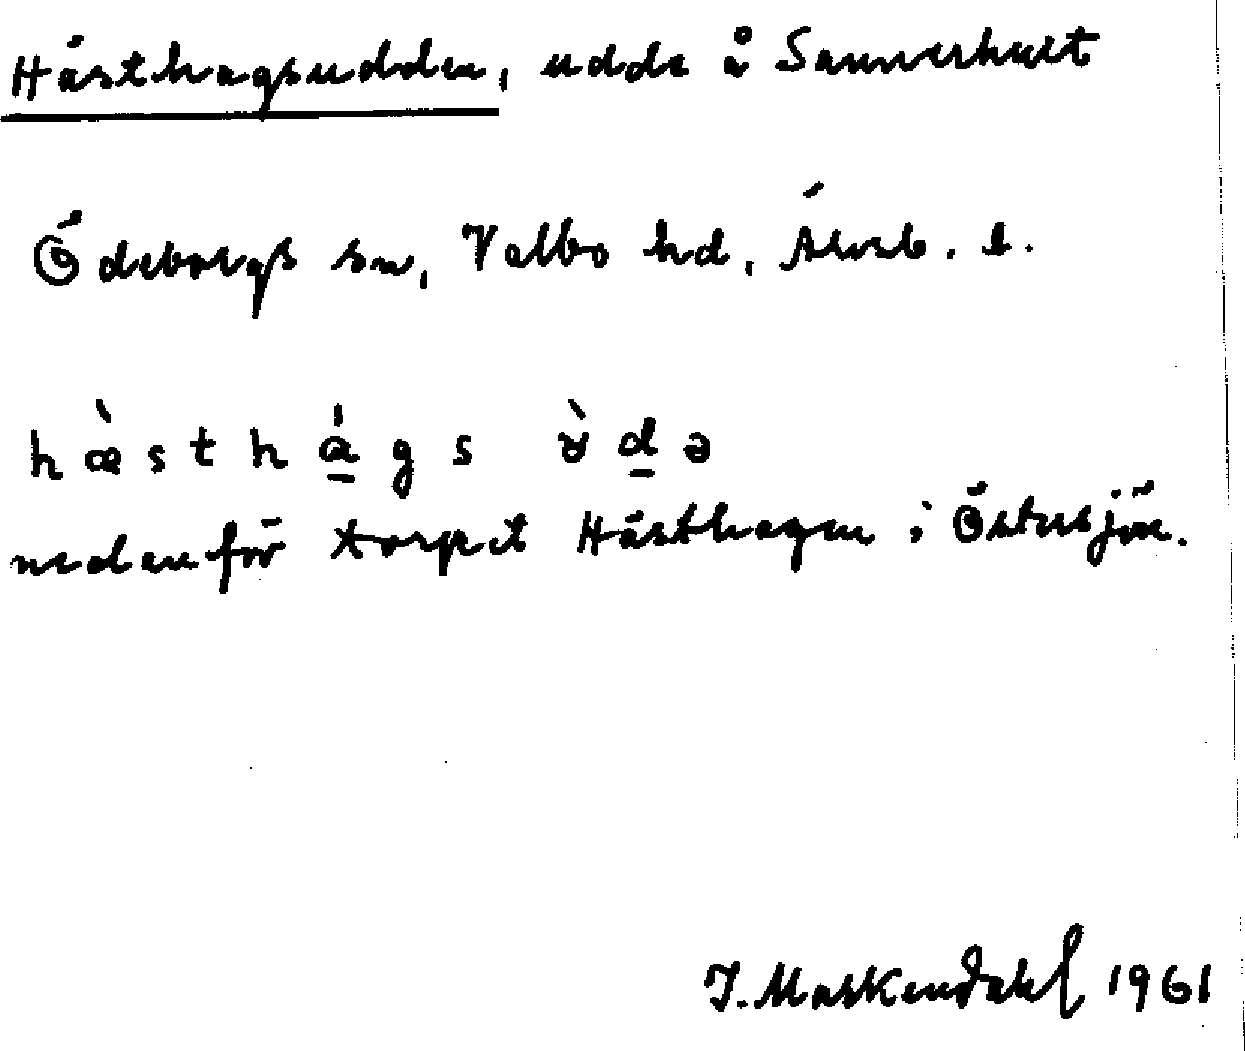 Hästhagsudden, udde å Sannerhult
Ödeborgs sn, Valbo hd, Älvsb. l.
hæ̀sthá̱gs ù̠d̲ə
nedanför torpet Hästhagen i Östersjön.
J. Maskendahl 1961